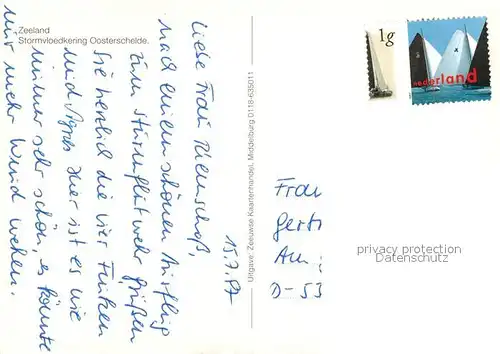 Zeeland
Stormvloedkering Oosterschelde.
15.7.97
Liebe Frau
nach einem schönen Ausflug
zum Sturmflutwehr grüßen
Sie herzlich die vier Funken
und Agnes. Hier ist es wie
immer sehr schön, es könnte
nur mehr Wind wehen.
Uitgave: Zeeuwse Kaartenhandel, Middelburg 0118-635011
1g
nederland
Frau
Gert
Am
D-53
privacy protection
Datenschutz